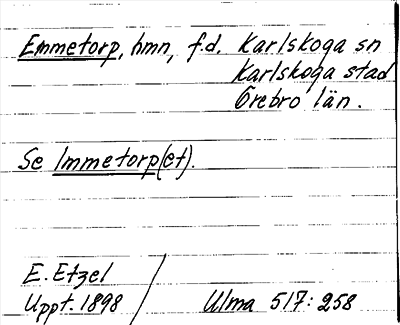 Emmetorp, hmn, f.d. Karlskoga sn
Karlskoga stad
Örebro län.
Se Immetorp(et).
E. Etzel
Uppt. 1898
Ulma 517:258